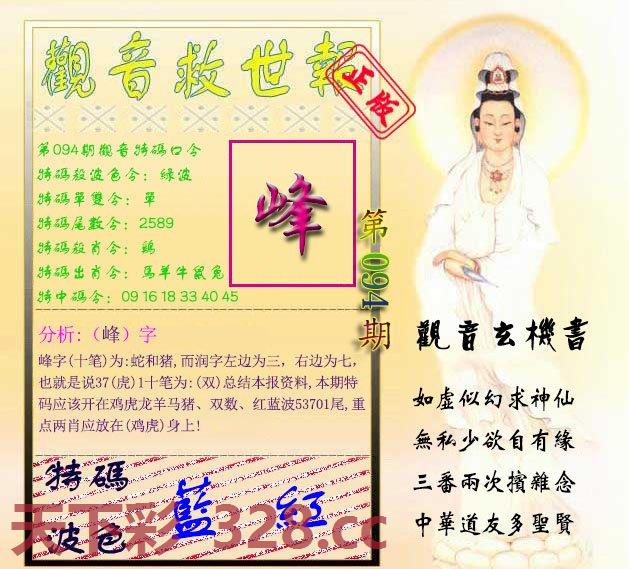 觀音救世報
正版
第094期觀音特碼口令
特碼殺波色令：綠波
特碼單雙令：單
特碼尾數令：2589
特碼殺肖令：鷄
特碼出肖令：馬羊牛鼠兔
特中碼令：09 16 18 33 40 45
峰
第094期
分析:（峰）字
峰字(十笔)为:蛇和猪,而润字左边为三，右边为七，
也就是说37(虎)1十笔为:(双)总结本报资料,本期特
码应该开在鸡虎龙羊马猪、双数、红蓝波53701尾,重
点两肖应放在(鸡虎)身上!
特碼
波色
藍 紅
天下彩 328.cc
觀音玄機書
如虛似幻求神仙
無私少欲自有緣
三番兩次擯雜念
中華道友多聖賢